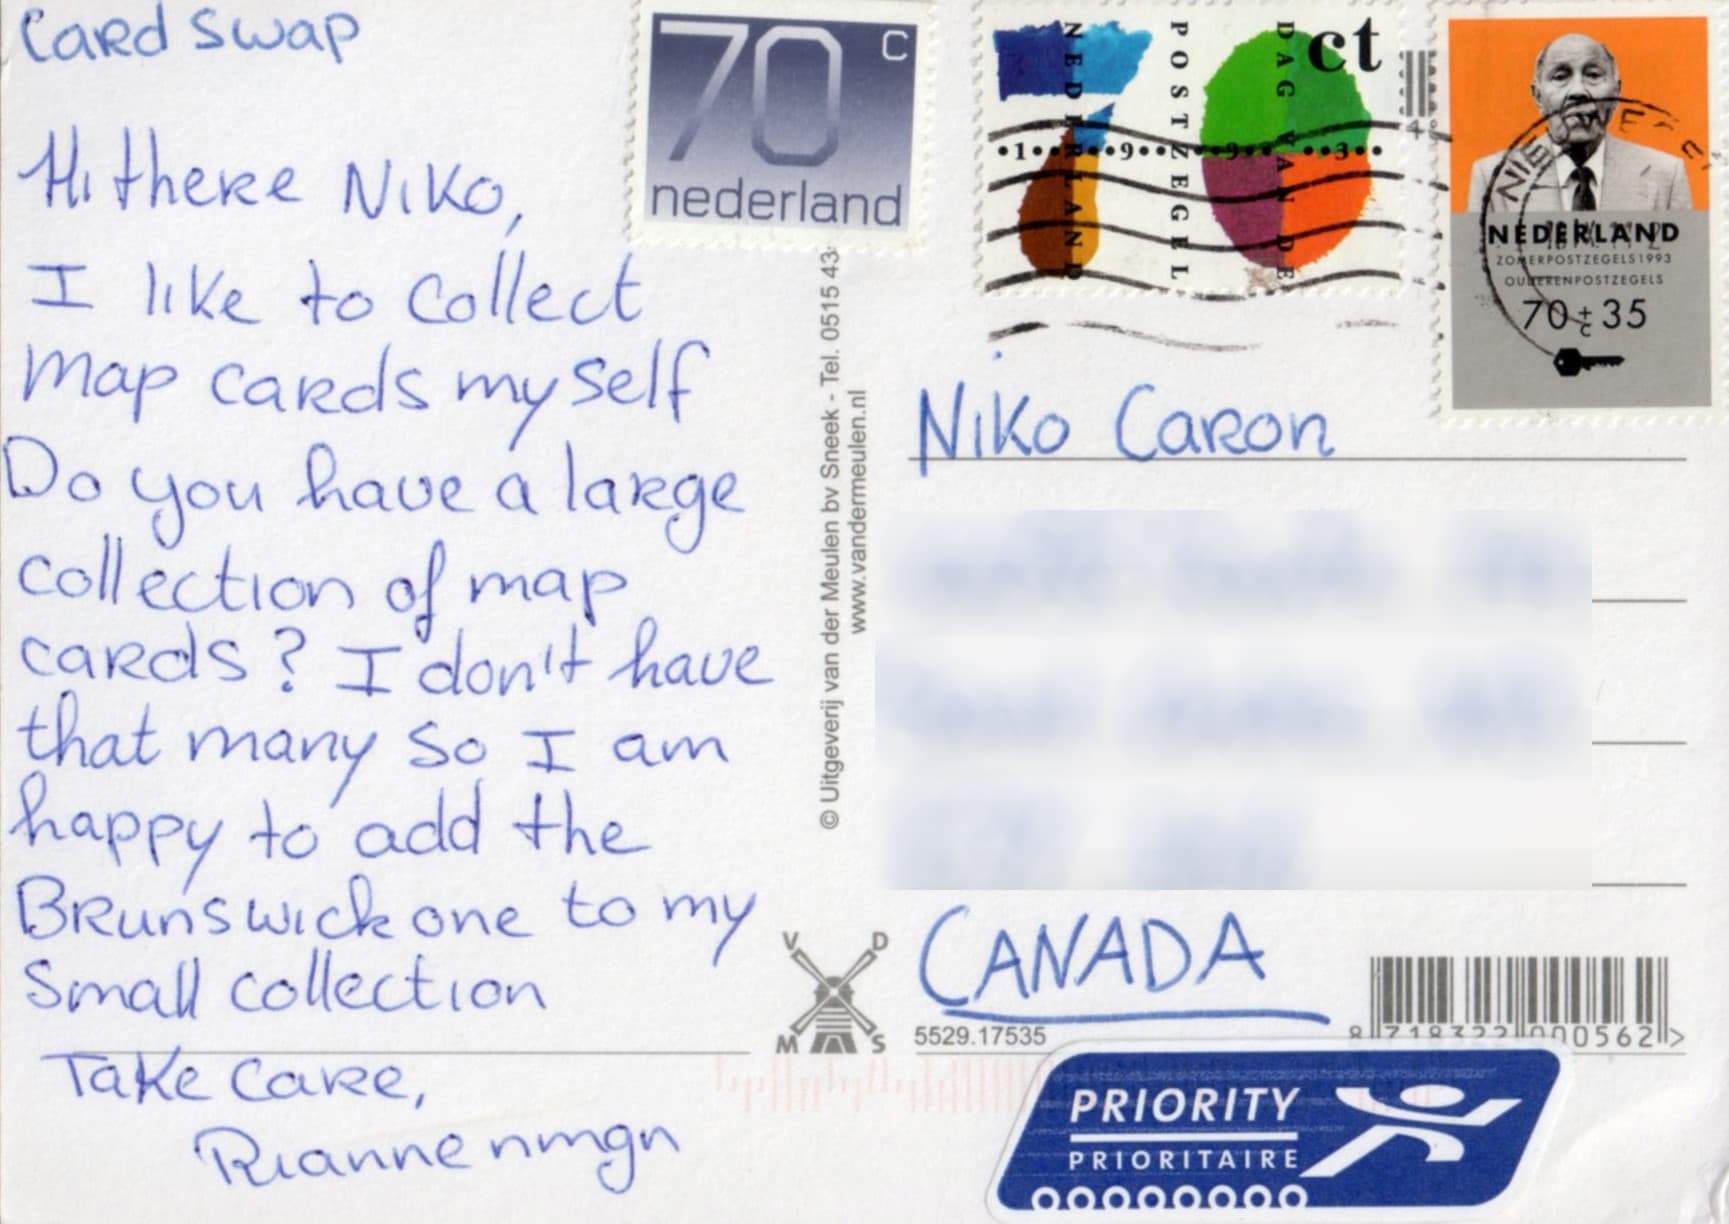 Card swap
Hi there Niko,
I like to collect
map cards myself
Do you have a large
collection of map
cards? I don't have
that many so I am
happy to add the
Brunswick one to my
small collection
Take care,
Rianne nmgn
70 c
nederland
ct
NEDERLAND
POSTZEGEL
DAG VAN DE
•1••9••9••3••
NEDERLAND
ZOMERPOSTZEGELS1993
OUDERENPOSTZEGELS
70+35
c
© Uitgeverij van der Meulen bv Sneek - Tel. 0515 43
www.vandermeulen.nl
Niko Caron
CANADA
V D
M S
5529.17535
8 718322 000562 >
PRIORITY
PRIORITAIRE